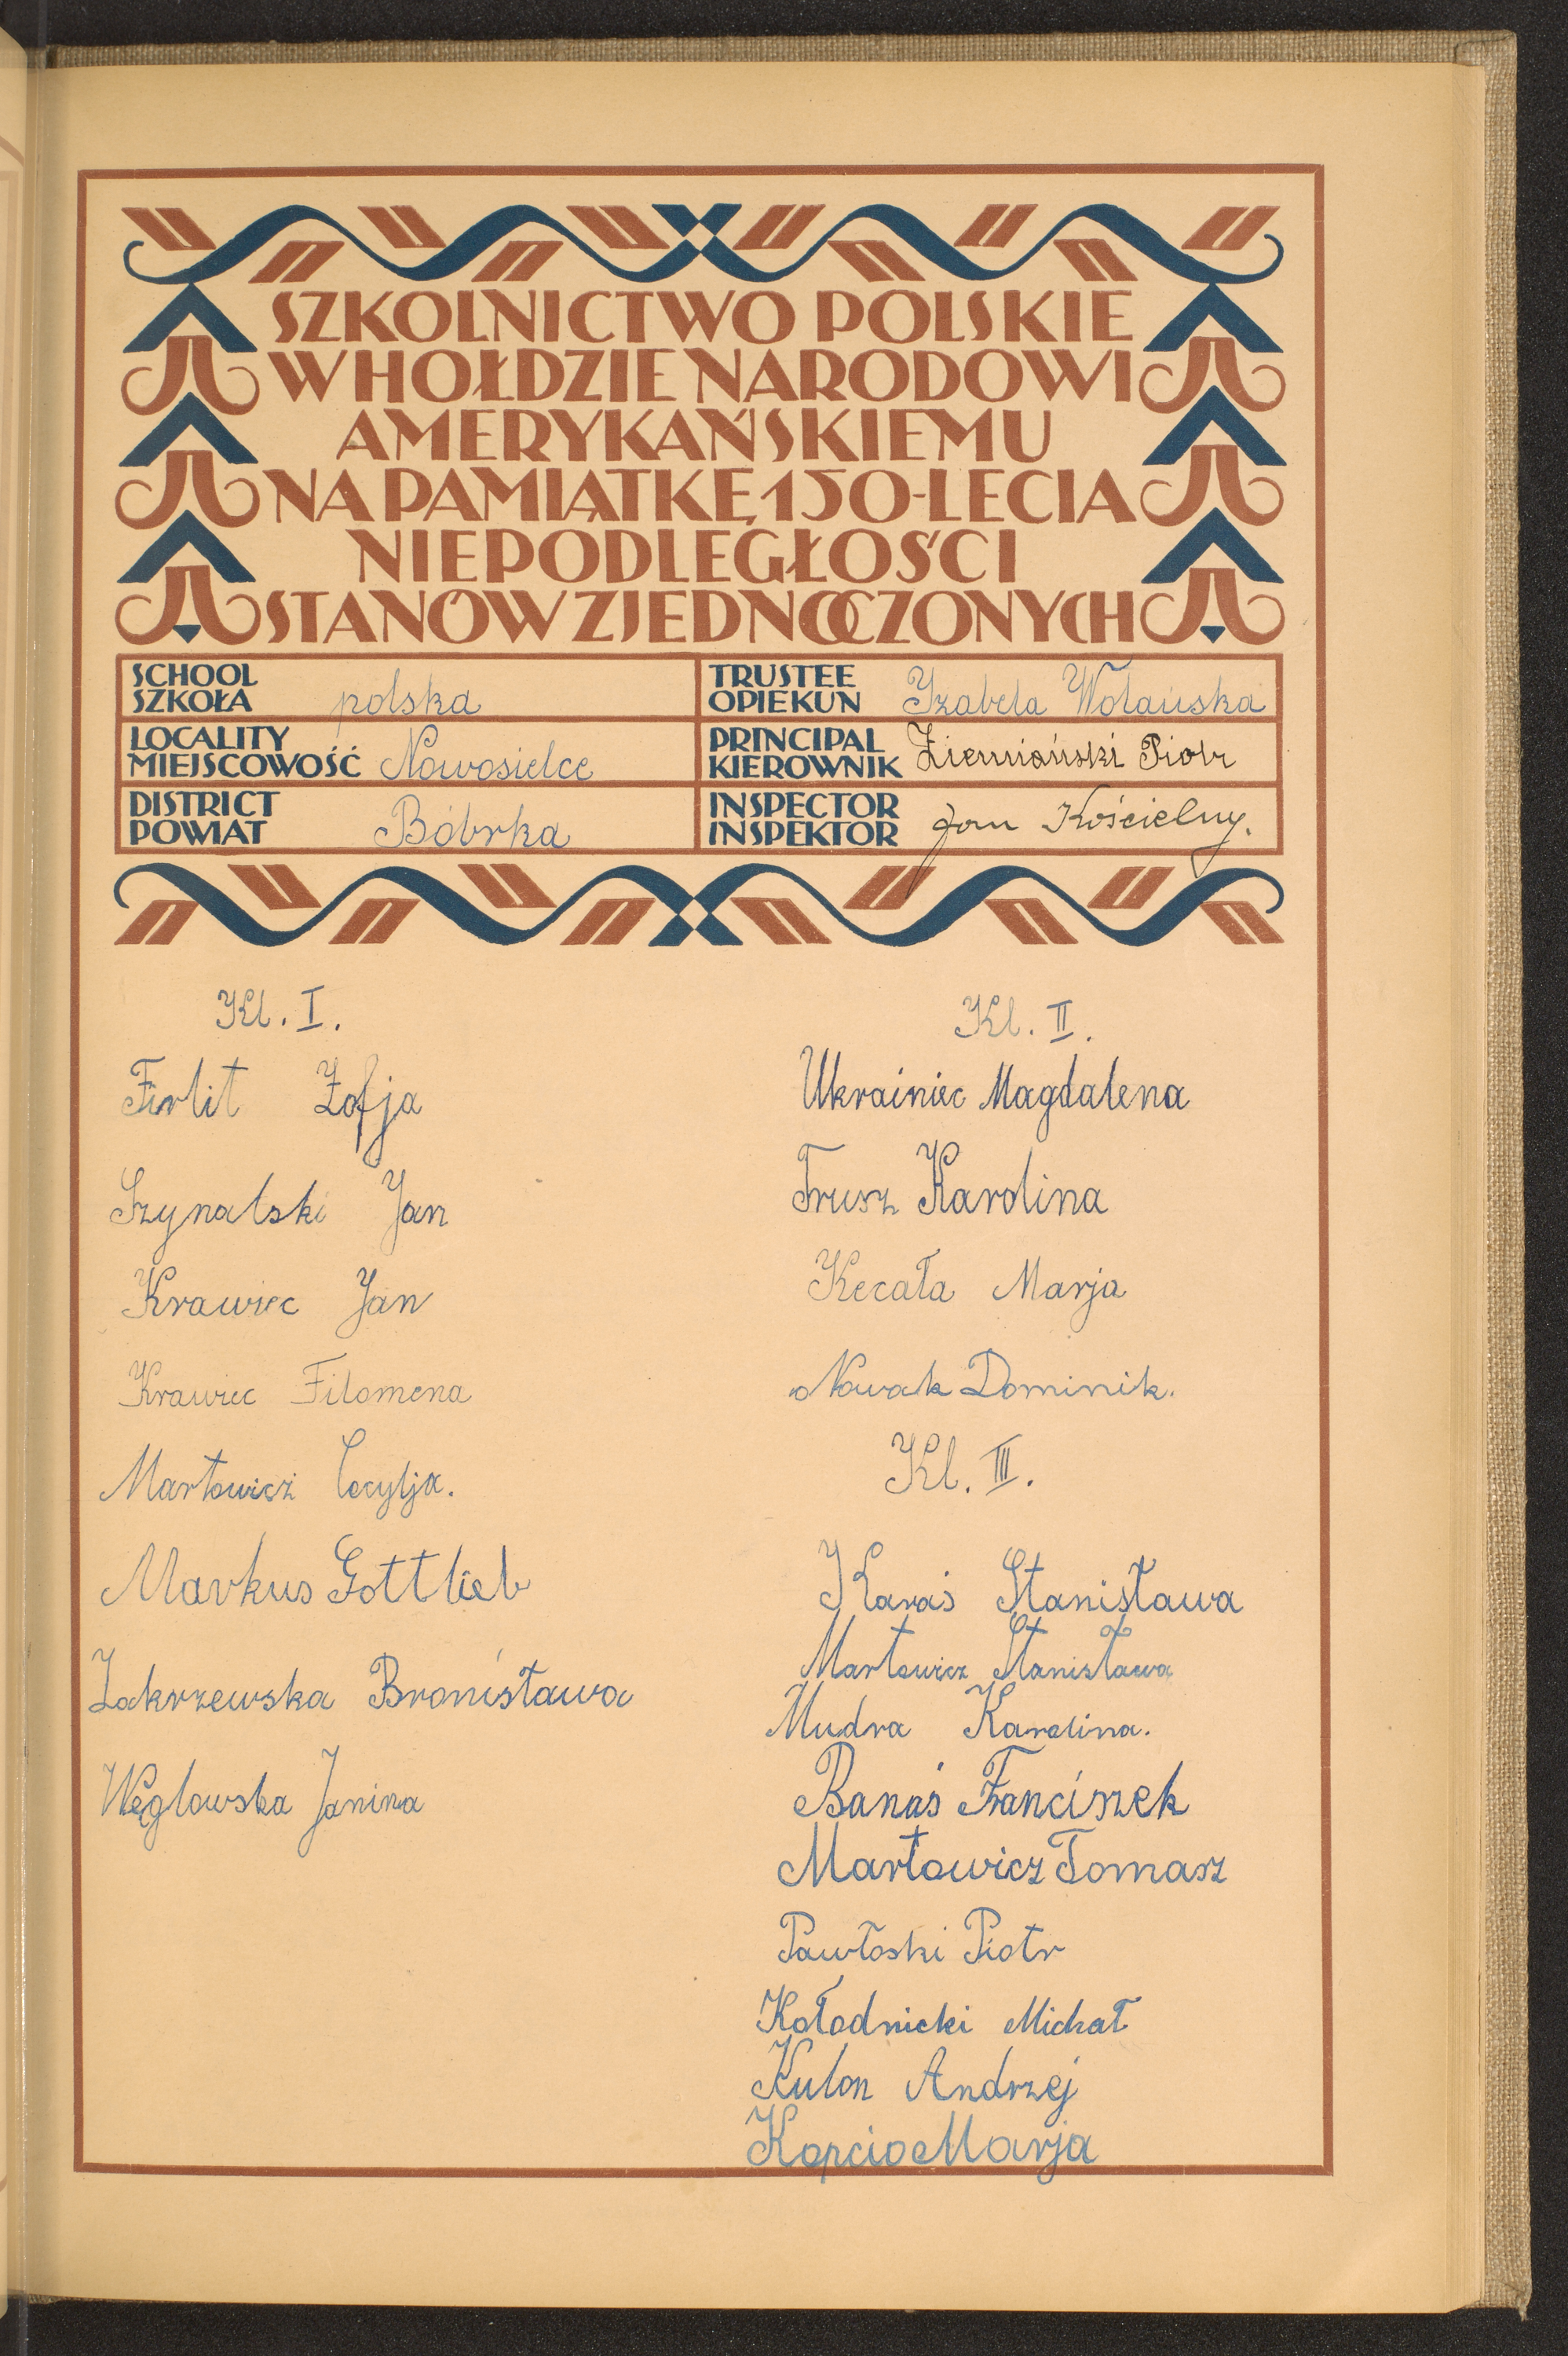 SZKOLNICTWO POLSKIE
W HOŁDZIE NARODOWI
AMERYKAŃSKIEMU
NA PAMIĄTKĘ 150-LECIA
NIEPODLEGŁOŚCI
STANÓW ZJEDNOCZONYCH
SCHOOL
SZKOŁA polska
TRUSTEE
OPIEKUN Izabela Wolańska
LOCALITY
MIEJSCOWOŚĆ Nowosielce
PRINCIPAL
KIEROWNIK Ziemiański Piotr
DISTRICT
POWIAT Bóbrka
INSPECTOR
INSPEKTOR Jan Kościelny.
Kl. I.
Firlit Zofja
Szynalski Jan
Krawiec Jan
Krawiec Filomena
Martowicz Cecylja.
Markus Gottlieb
Zakrzewska Bronisława
Węglowska Janina
Kl. II.
Ukrainiec Magdalena
Trusz Karolina
Kecała Marja
Nowak Dominik.
Kl. III.
Karaś Stanisława
Martowicz Stanisława
Mudra Karolina.
Banaś Franciszek
Martowicz Tomasz
Pawłoski Piotr
Kołodnicki Michał
Kulon Andrzej
Kopcio Marja